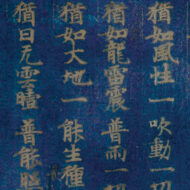 猶如風性一 吹動一切
猶如龍雷震 普雨一切
猶如大地一 能生種
猶日无雲曀 普能照